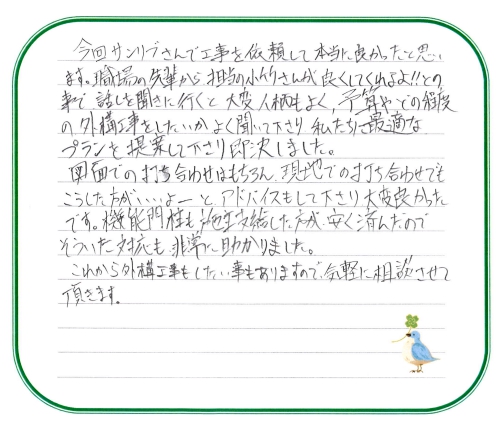 今回サンリブさんで工事を依頼して本当に良かったと思い
ます。職場の先輩から担当の小竹さんが良くしてくれるよ!!との
事で話しを聞きに行くと大変人柄もよく、予算やどの程度
の外構工事をしたいかよく聞いて下さり私たちに最適な
プランを提案して下さり即決しました。
図面での打ち合わせはもちろん、現地での打ち合わせでも
こうした方がいいよーとアドバイスもして下さり大変良かった
です。機能門柱も施主支給した方が安く済んだので
そういった対応も非常に助かりました。
これから外構工事もしたい事もありますので気軽に相談させて
頂きます。